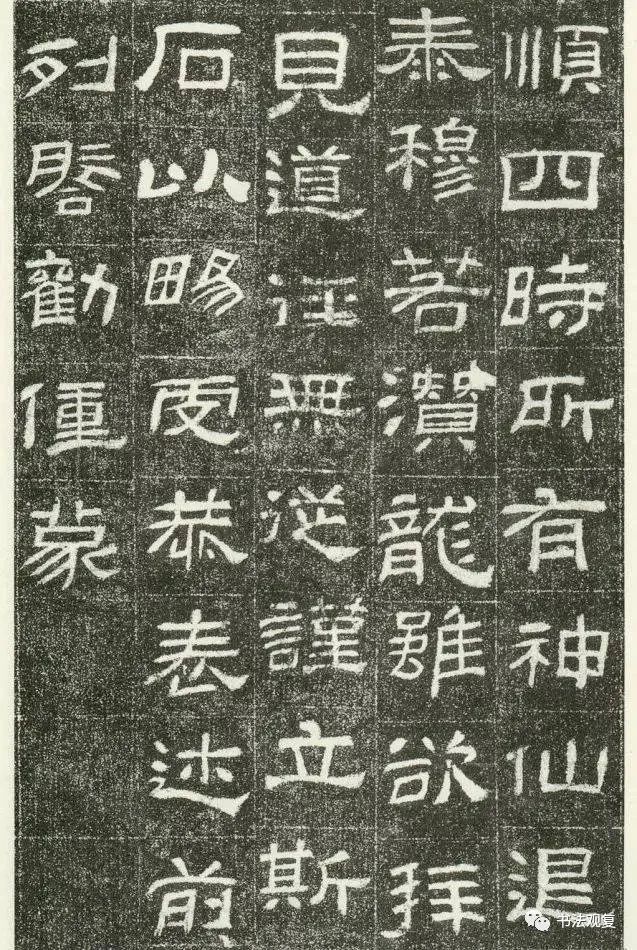 順四時所有神仙退
泰穆若濳龍雖欲拜
見道徑無從謹立斯
石以畼虔恭表述前
列啓勸僮蒙
书法观复